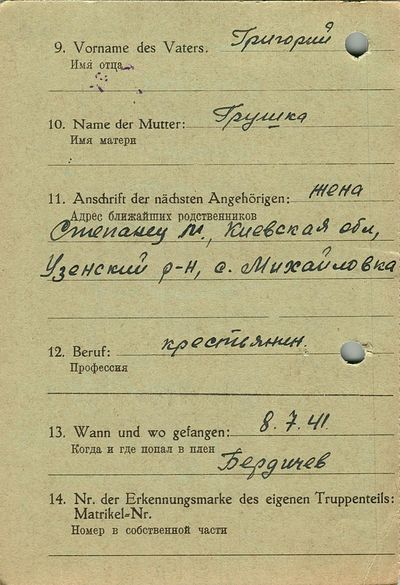 9. Vorname des Vaters. Григорий
Имя отца
10. Name der Mutter: Грушка
Имя матери
11. Anschrift der nächsten Angehörigen: жена
Адрес ближайших родственников
Степанец М., Киевская обл,
Узенский р-н, с. Михайловка
12. Beruf: крестьянин.
Профессия
13. Wann und wo gefangen: 8.7.41.
Когда и где попал в плен
Бердичев
14. Nr. der Erkennungsmarke des eigenen Truppenteils:
Matrikel-Nr.
Номер в собственной части